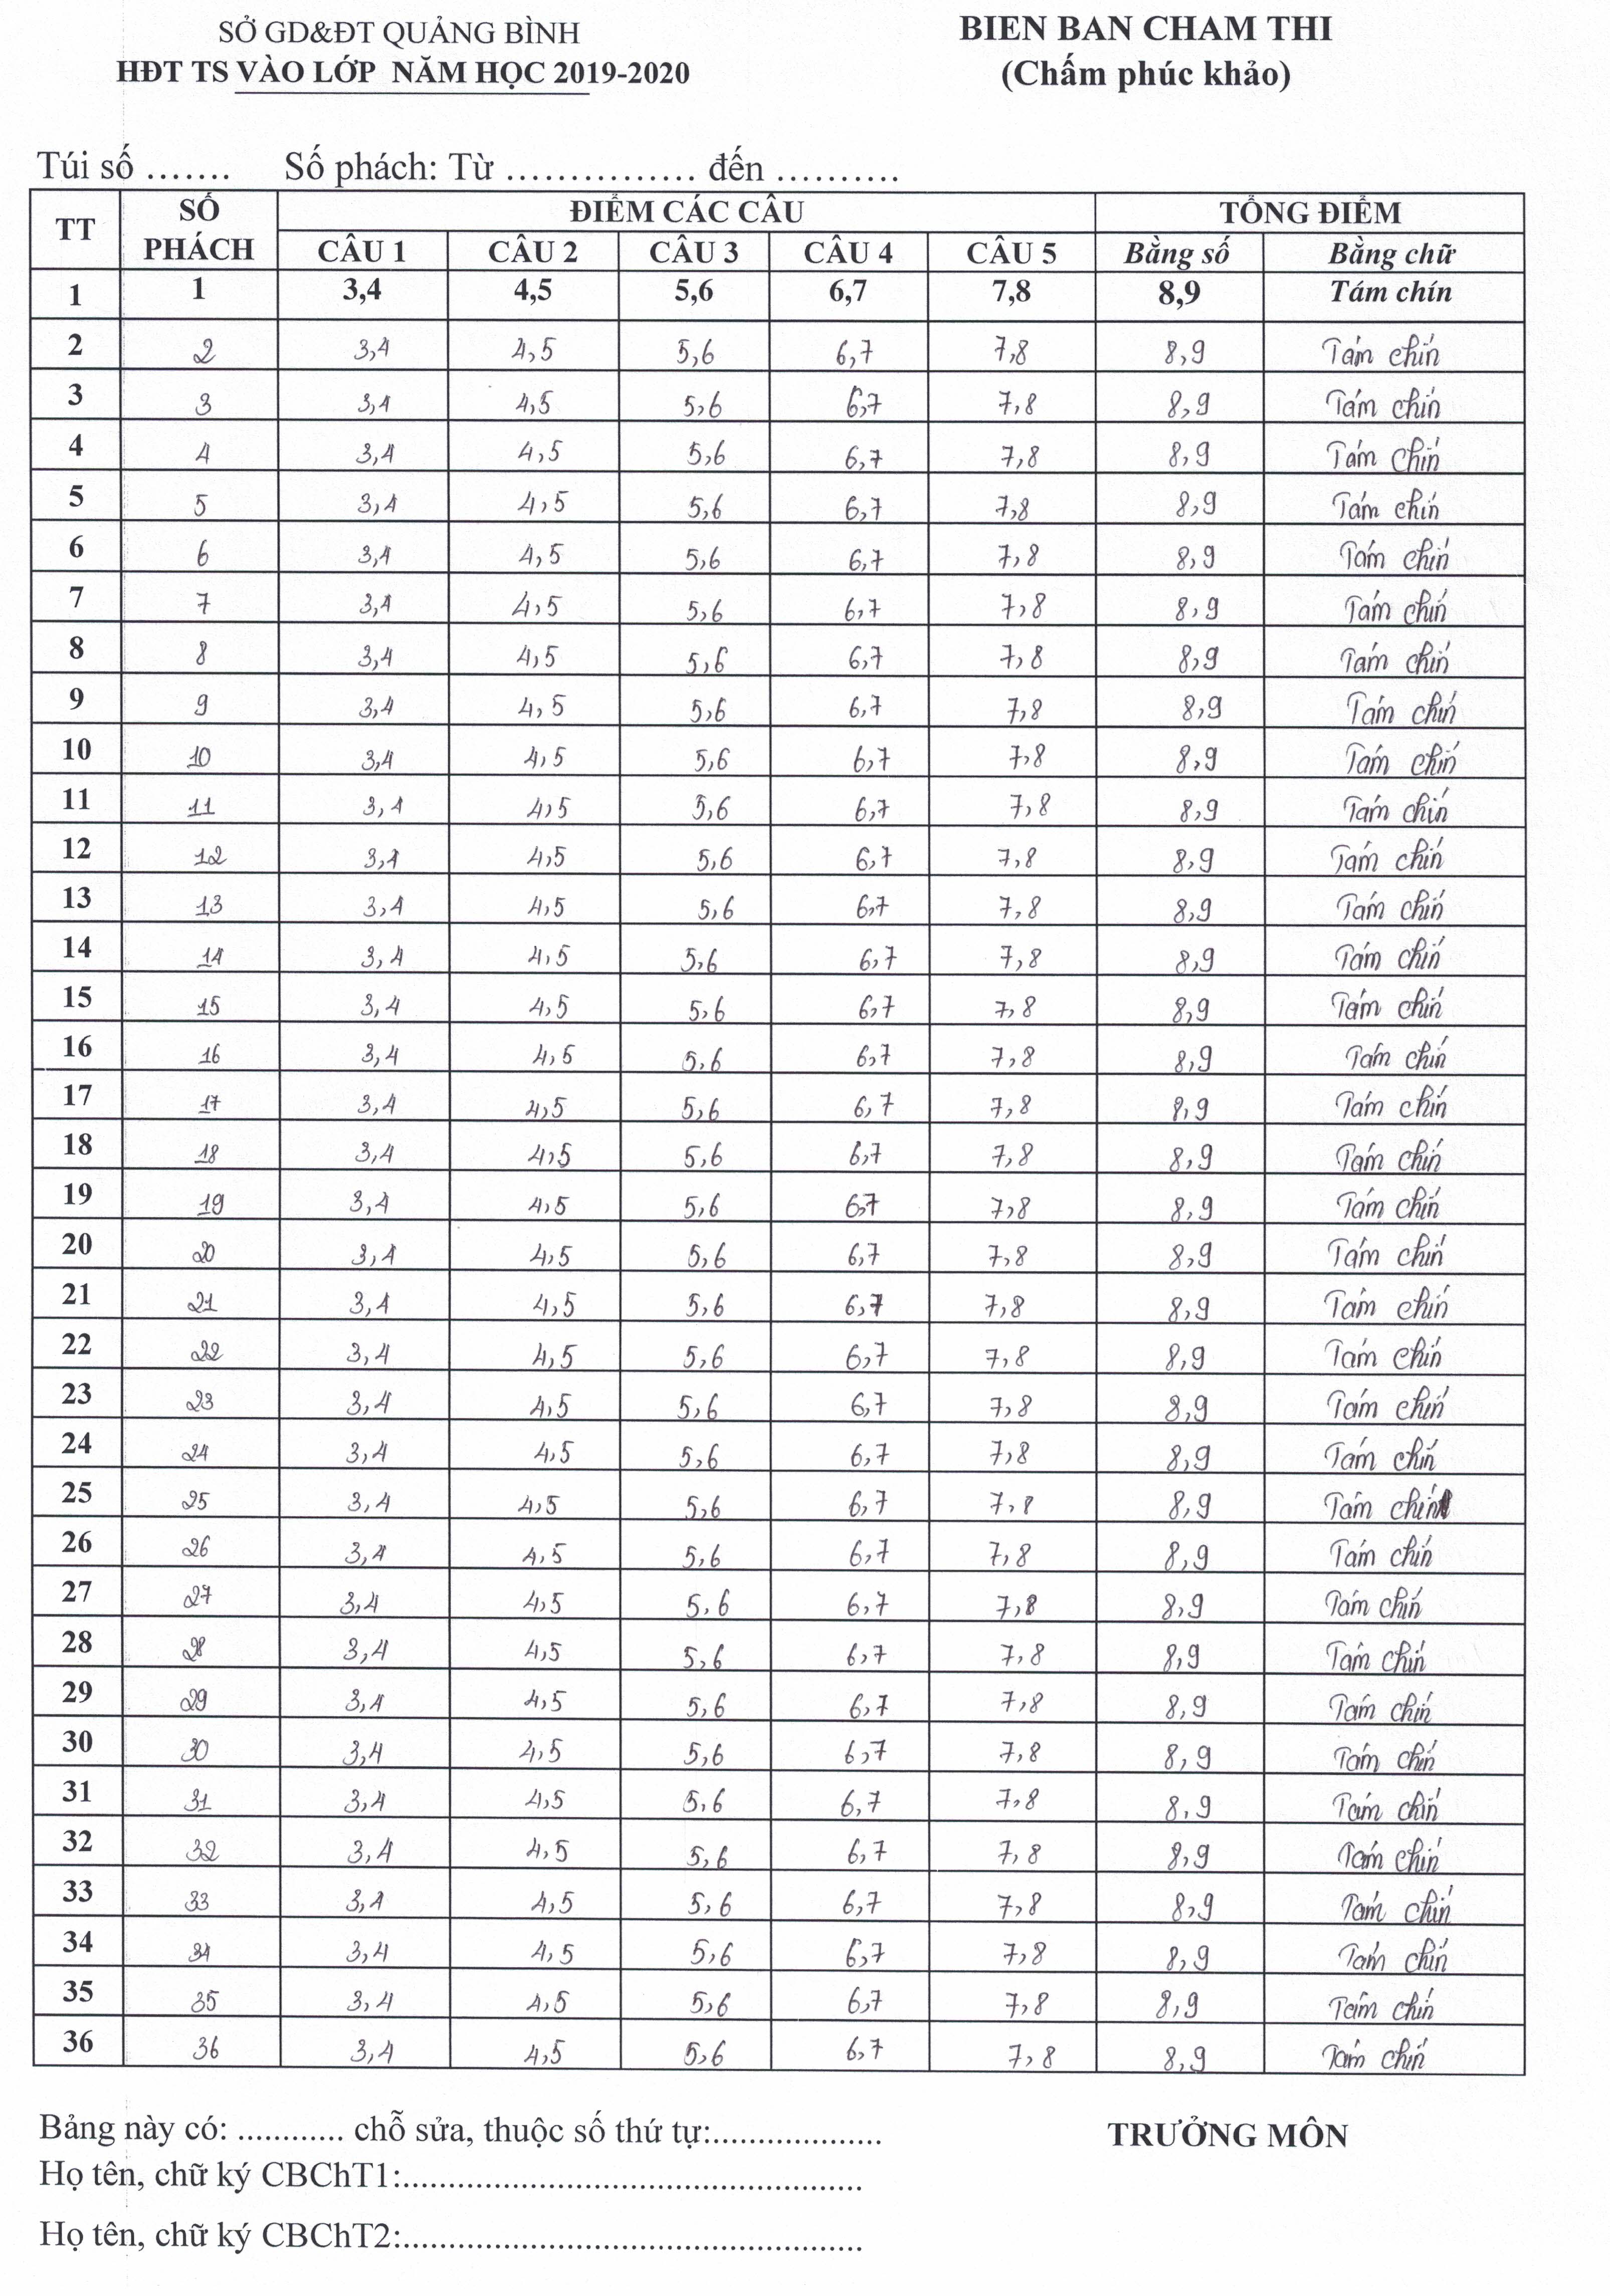 SỞ GD&ĐT QUẢNG BÌNH BIEN BAN CHAM THI
HĐT TS VÀO LỚP NĂM HỌC 2019-2020 (Chấm phúc khảo)
Túi số ....... Số phách: Từ ............... đến ..........
TT SỐ PHÁCH ĐIỂM CÁC CÂU TỔNG ĐIỂM
CÂU 1 CÂU 2 CÂU 3 CÂU 4 CÂU 5 Bằng số Bằng chữ
1 1 3,4 4,5 5,6 6,7 7,8 8,9 Tám chín
2 2 3,4 4,5 5,6 6,7 7,8 8,9 Tám chín
3 3 3,4 4,5 5,6 6,7 7,8 8,9 Tám chín
4 4 3,4 4,5 5,6 6,7 7,8 8,9 Tám chín
5 5 3,4 4,5 5,6 6,7 7,8 8,9 Tám chín
6 6 3,4 4,5 5,6 6,7 7,8 8,9 Tám chín
7 7 3,4 4,5 5,6 6,7 7,8 8,9 Tám chín
8 8 3,4 4,5 5,6 6,7 7,8 8,9 Tám chín
9 9 3,4 4,5 5,6 6,7 7,8 8,9 Tám chín
10 10 3,4 4,5 5,6 6,7 7,8 8,9 Tám chín
11 11 3,4 4,5 5,6 6,7 7,8 8,9 Tám chín
12 12 3,4 4,5 5,6 6,7 7,8 8,9 Tám chín
13 13 3,4 4,5 5,6 6,7 7,8 8,9 Tám chín
14 14 3,4 4,5 5,6 6,7 7,8 8,9 Tám chín
15 15 3,4 4,5 5,6 6,7 7,8 8,9 Tám chín
16 16 3,4 4,5 5,6 6,7 7,8 8,9 Tám chín
17 17 3,4 4,5 5,6 6,7 7,8 8,9 Tám chín
18 18 3,4 4,5 5,6 6,7 7,8 8,9 Tám chín
19 19 3,4 4,5 5,6 6,7 7,8 8,9 Tám chín
20 20 3,4 4,5 5,6 6,7 7,8 8,9 Tám chín
21 21 3,4 4,5 5,6 6,7 7,8 8,9 Tám chín
22 22 3,4 4,5 5,6 6,7 7,8 8,9 Tám chín
23 23 3,4 4,5 5,6 6,7 7,8 8,9 Tám chín
24 24 3,4 4,5 5,6 6,7 7,8 8,9 Tám chín
25 25 3,4 4,5 5,6 6,7 7,8 8,9 Tám chín
26 26 3,4 4,5 5,6 6,7 7,8 8,9 Tám chín
27 27 3,4 4,5 5,6 6,7 7,8 8,9 Tám chín
28 28 3,4 4,5 5,6 6,7 7,8 8,9 Tám chín
29 29 3,4 4,5 5,6 6,7 7,8 8,9 Tám chín
30 30 3,4 4,5 5,6 6,7 7,8 8,9 Tám chín
31 31 3,4 4,5 5,6 6,7 7,8 8,9 Tám chín
32 32 3,4 4,5 5,6 6,7 7,8 8,9 Tám chín
33 33 3,4 4,5 5,6 6,7 7,8 8,9 Tám chín
34 34 3,4 4,5 5,6 6,7 7,8 8,9 Tám chín
35 35 3,4 4,5 5,6 6,7 7,8 8,9 Tám chín
36 36 3,4 4,5 5,6 6,7 7,8 8,9 Tám chín
Bảng này có: ............ chỗ sửa, thuộc số thứ tự:................... TRƯỞNG MÔN
Họ tên, chữ ký CBChT1:....................................................
Họ tên, chữ ký CBChT2:....................................................